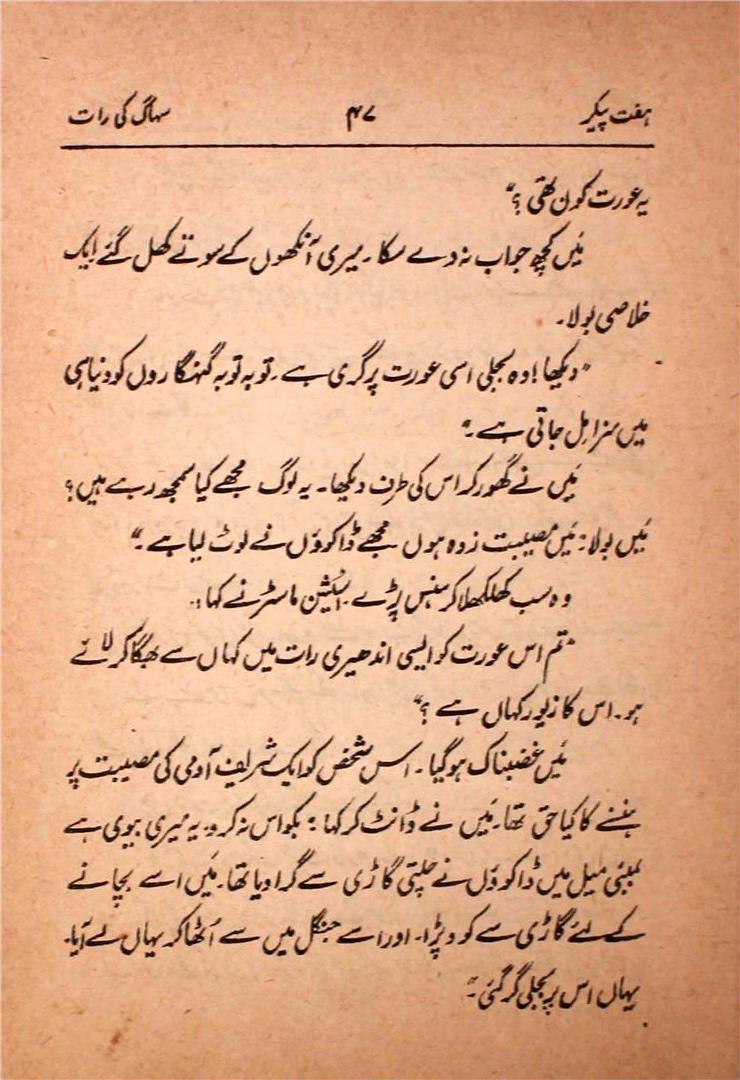 ہفت پیکر ۴۷ سہاگ کی رات
یہ عورت کون تھی ؟"
مَیں کچھ جواب نہ دے سکا ۔ میری آنکھوں کے سوتے کھل گئے ایک
خلاصی بولا۔
"دیکھا ! وہ بجلی اسی عورت پر گری ہے ۔ توبہ توبہ گنہگاروں کو دنیا ہی
میں سزا مل جاتی ہے ۔"
مَیں نے گھور کر اس کی طرف دیکھا ۔ یہ لوگ مجھے کیا سمجھ رہے ہیں ؟
مَیں بولا : مَیں مصیبت زدہ ہوں مجھے ڈاکوؤں نے لوٹ لیا ہے ۔"
وہ سب کھلکھلا کر ہنس پڑے ۔ اسٹیشن ماسٹر نے کہا :
"تم اس عورت کو ایسی اندھیری رات میں کہاں سے بھگا کر لائے
ہو ۔ اس کا زیور کہاں ہے ؟"
مَیں غضبناک ہو گیا ۔ اس شخص کو ایک شریف آدمی کی مصیبت پر
ہنسنے کا کیا حق تھا ۔ مَیں نے ڈانٹ کر کہا : بکواس نہ کرو ، یہ میری بیوی ہے
بمبئی میل میں ڈاکوؤں نے چلتی گاڑی سے گرا دیا تھا ۔ مَیں اسے بچانے
کے لئے گاڑی سے کود پڑا ۔ اور اسے جنگل میں سے اُٹھا کر یہاں لے آیا ۔
یہاں اس پر بجلی گر گئی ۔"